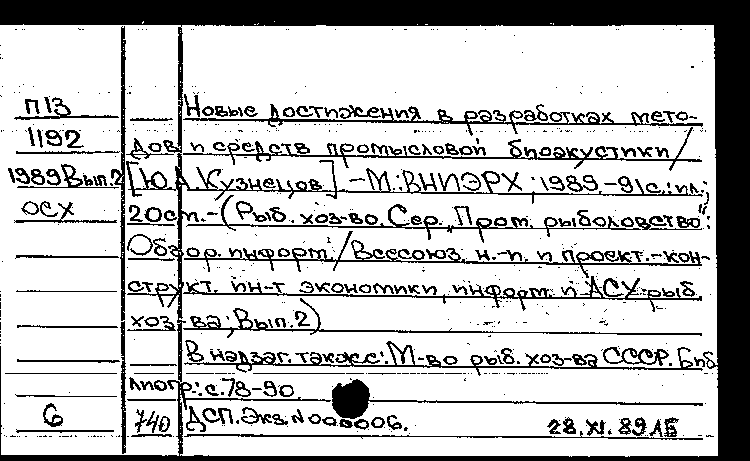 П13 Новые достижения в разработках мето-
1192 дов и средств промысловой биоакустики /
1989 Вып.2 [Ю.А. Кузнецов]. - М.: ВНИЭРХ, 1989. - 91с.: ил.;
ОСХ 20см. - (Рыб. хоз-во. Сер. "Пром. рыболовство":
Обзор. информ. / Всесоюз. н.-и. и проект.-кон-
структ. ин-т экономики, информ. и АСУ рыб.
хоз-ва; Вып. 2)
В надзаг. также: М-во рыб. хоз-ва СССР. Биб
лиогр.: с.78-90.
6 740 ДСП. Экз. N 000006. 28.XI.89 ЛБ